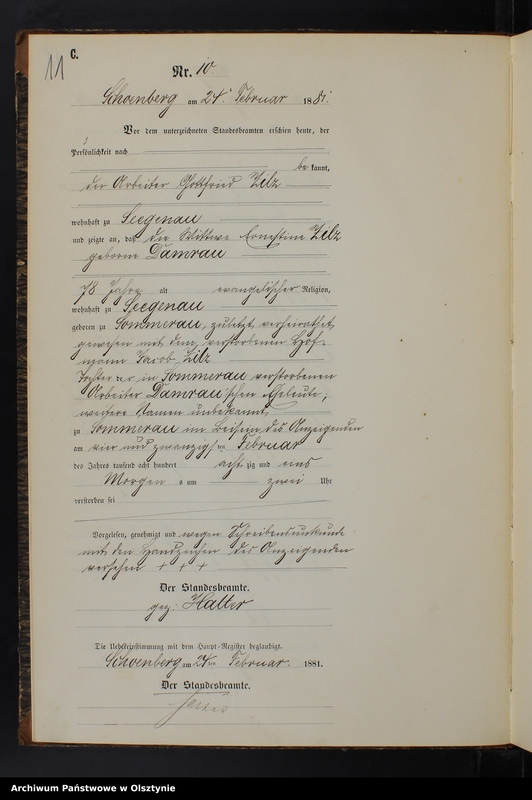 11
C.
Nr. 10.
Schoenberg am 24. Februar 1881.
Vor dem unterzeichneten Standesbeamten erschien heute, der
Persönlichkeit nach
bekannt,
der Arbeiter Gottfried Zilz
wohnhaft zu Seegenau
und zeigte an, daß die Wittwe Ernestine Zilz
geborne Damrau
78 Jahre alt evangelischer Religion,
wohnhaft zu Seegenau
geboren zu Sommerau, zuletzt verheirathet
gewesen mit dem verstorbenen Hof-
mann Jacob Zilz
Tochter der in Sommerau verstorbenen
Arbeiter Damrau'schen Eheleute,
weitere Namen unbekannt,
zu Sommerau im Beisein des Anzeigenden
am vier und zwanzigsten Februar
des Jahres tausend acht hundert achtzig und eins
Morgens um zwei Uhr
verstorben sei
Vorgelesen, genehmigt und wegen Schreibensunkunde
mit den Handzeichen des Anzeigenden
versehen + + +
Der Standesbeamte.
gez: Halter
Die Uebereinstimmung mit dem Haupt-Register beglaubigt.
Schoenberg am 24ten Februar 1881.
Der Standesbeamte.
Archiwum Państwowe w Olsztynie